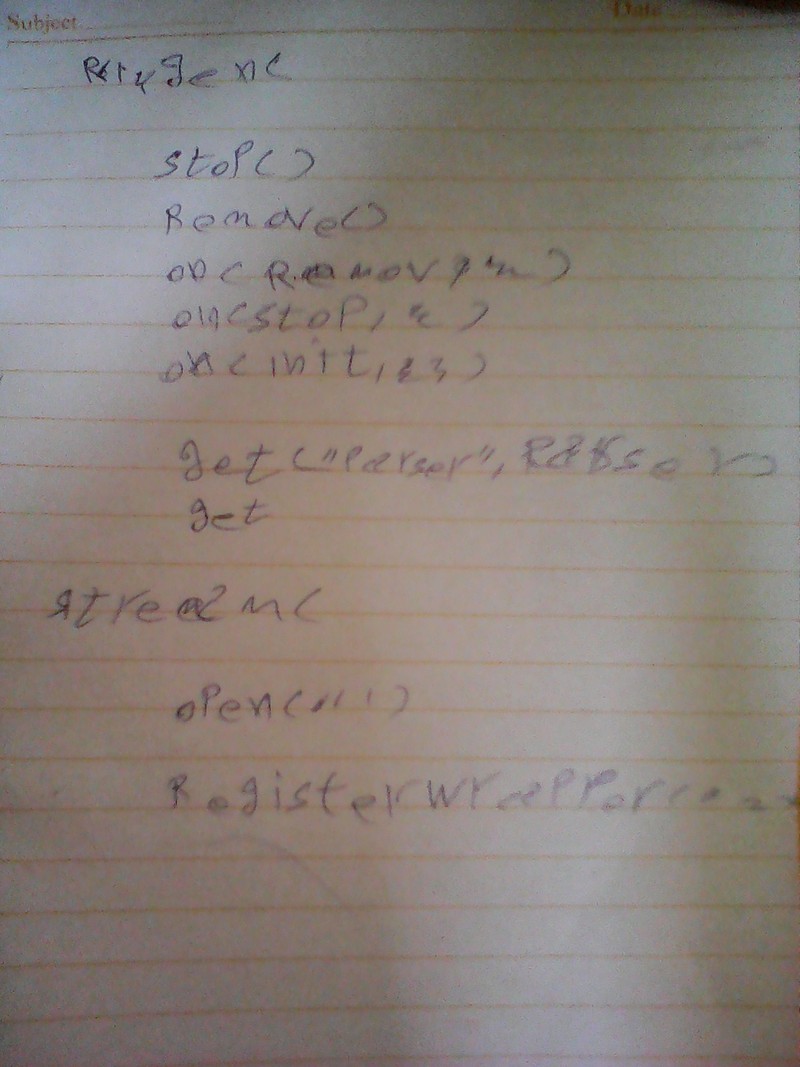 Subject
Date
stop()
Remove()
on(Remov,
on(stop,
on(init,
get("Parser", Parser)
get
stream(
open(
RegisterWrapper(